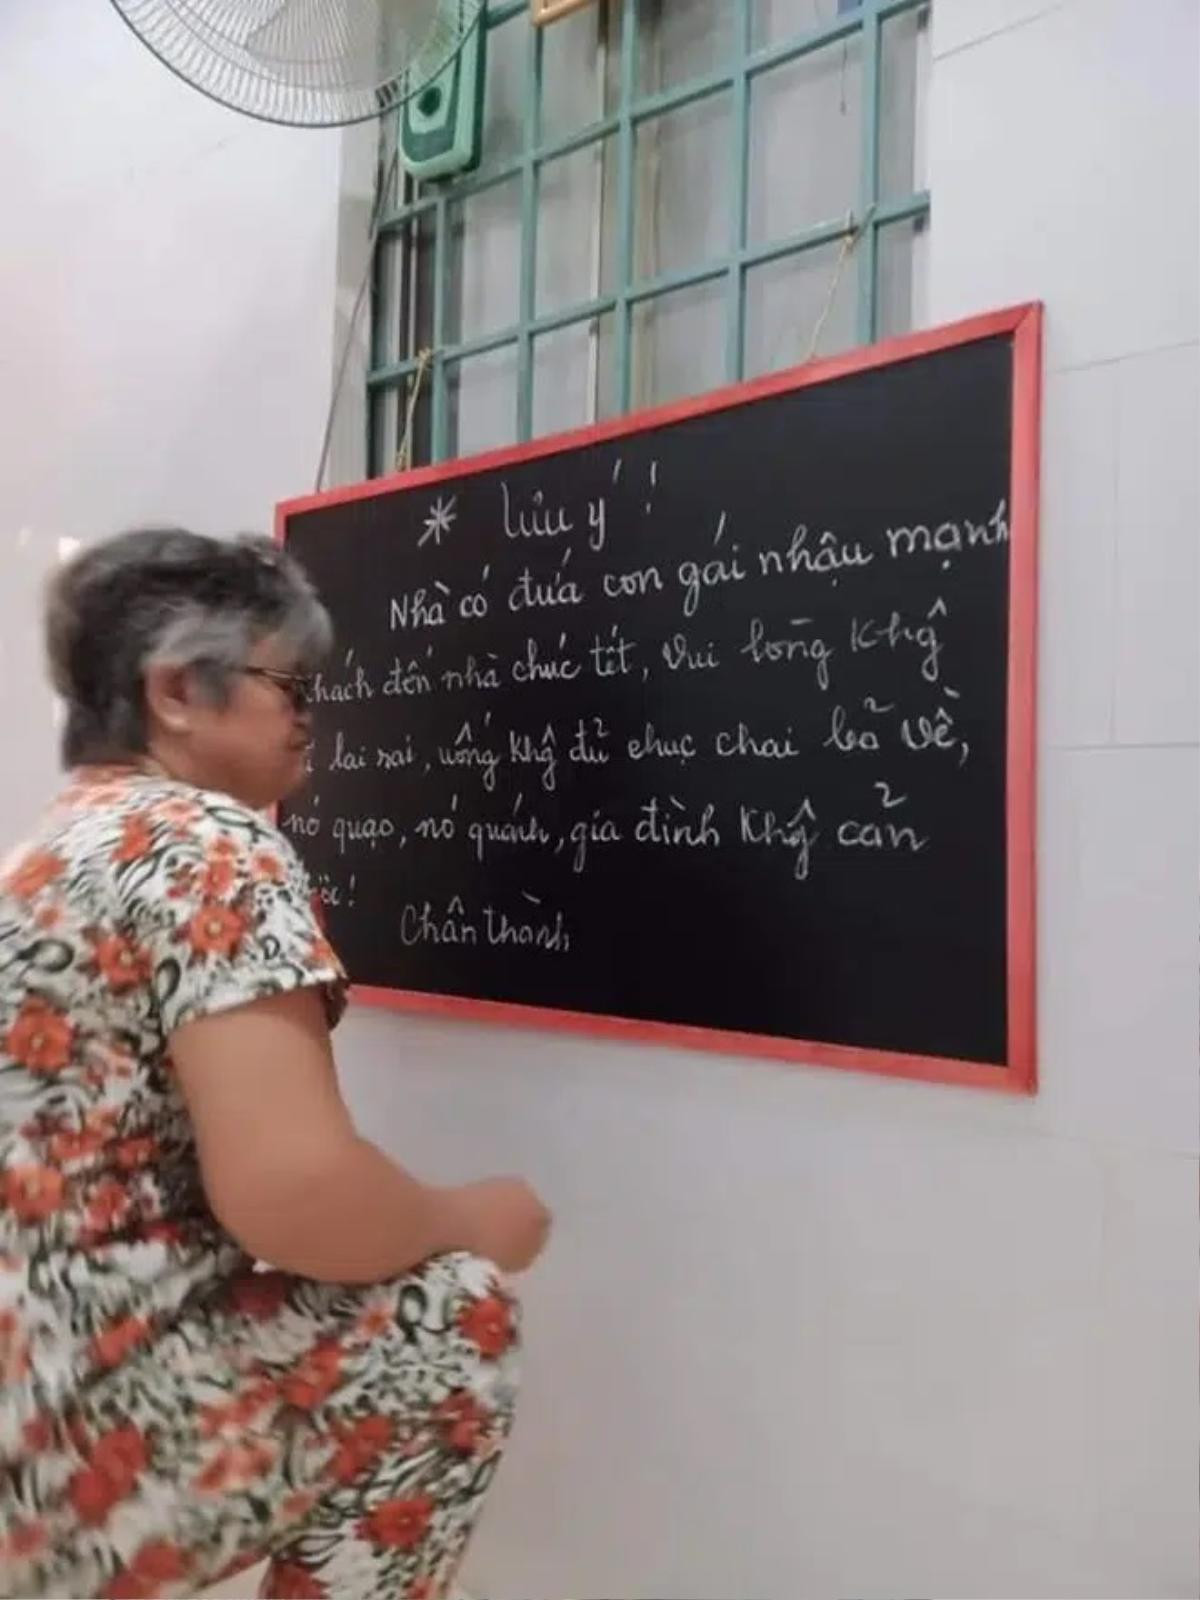 * Lưu ý!
Nhà có đứa con gái nhậu mạnh
khách đến nhà chúc tết, vui lòng khg
lai rai, uống khg đủ chục chai bỏ về,
nó quạo, nó quánh, gia đình khg cản
Chân thành